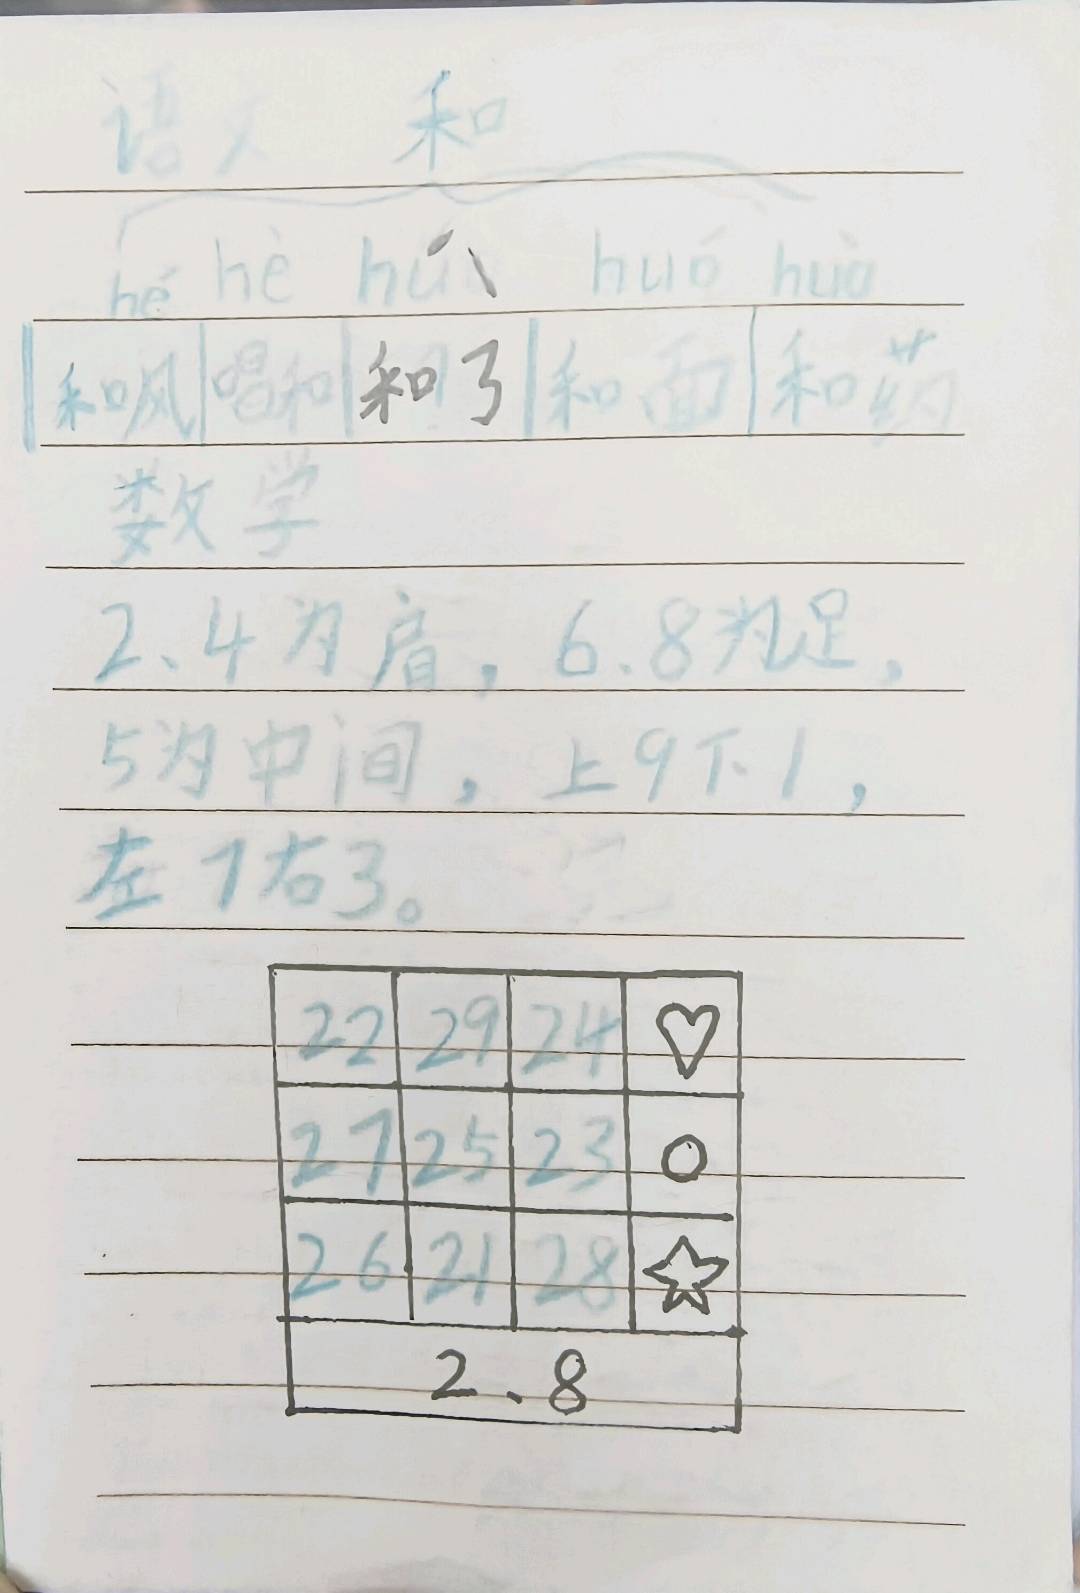 语文 和
hé hè hú huó huò
和风 唱和 和了 和面 和药
数学
2、4为肩，6、8为足，
5为中间，上9下1，
左7右3。
22 29 24 ♡
27 25 23 ○
26 21 28 ☆
2、8